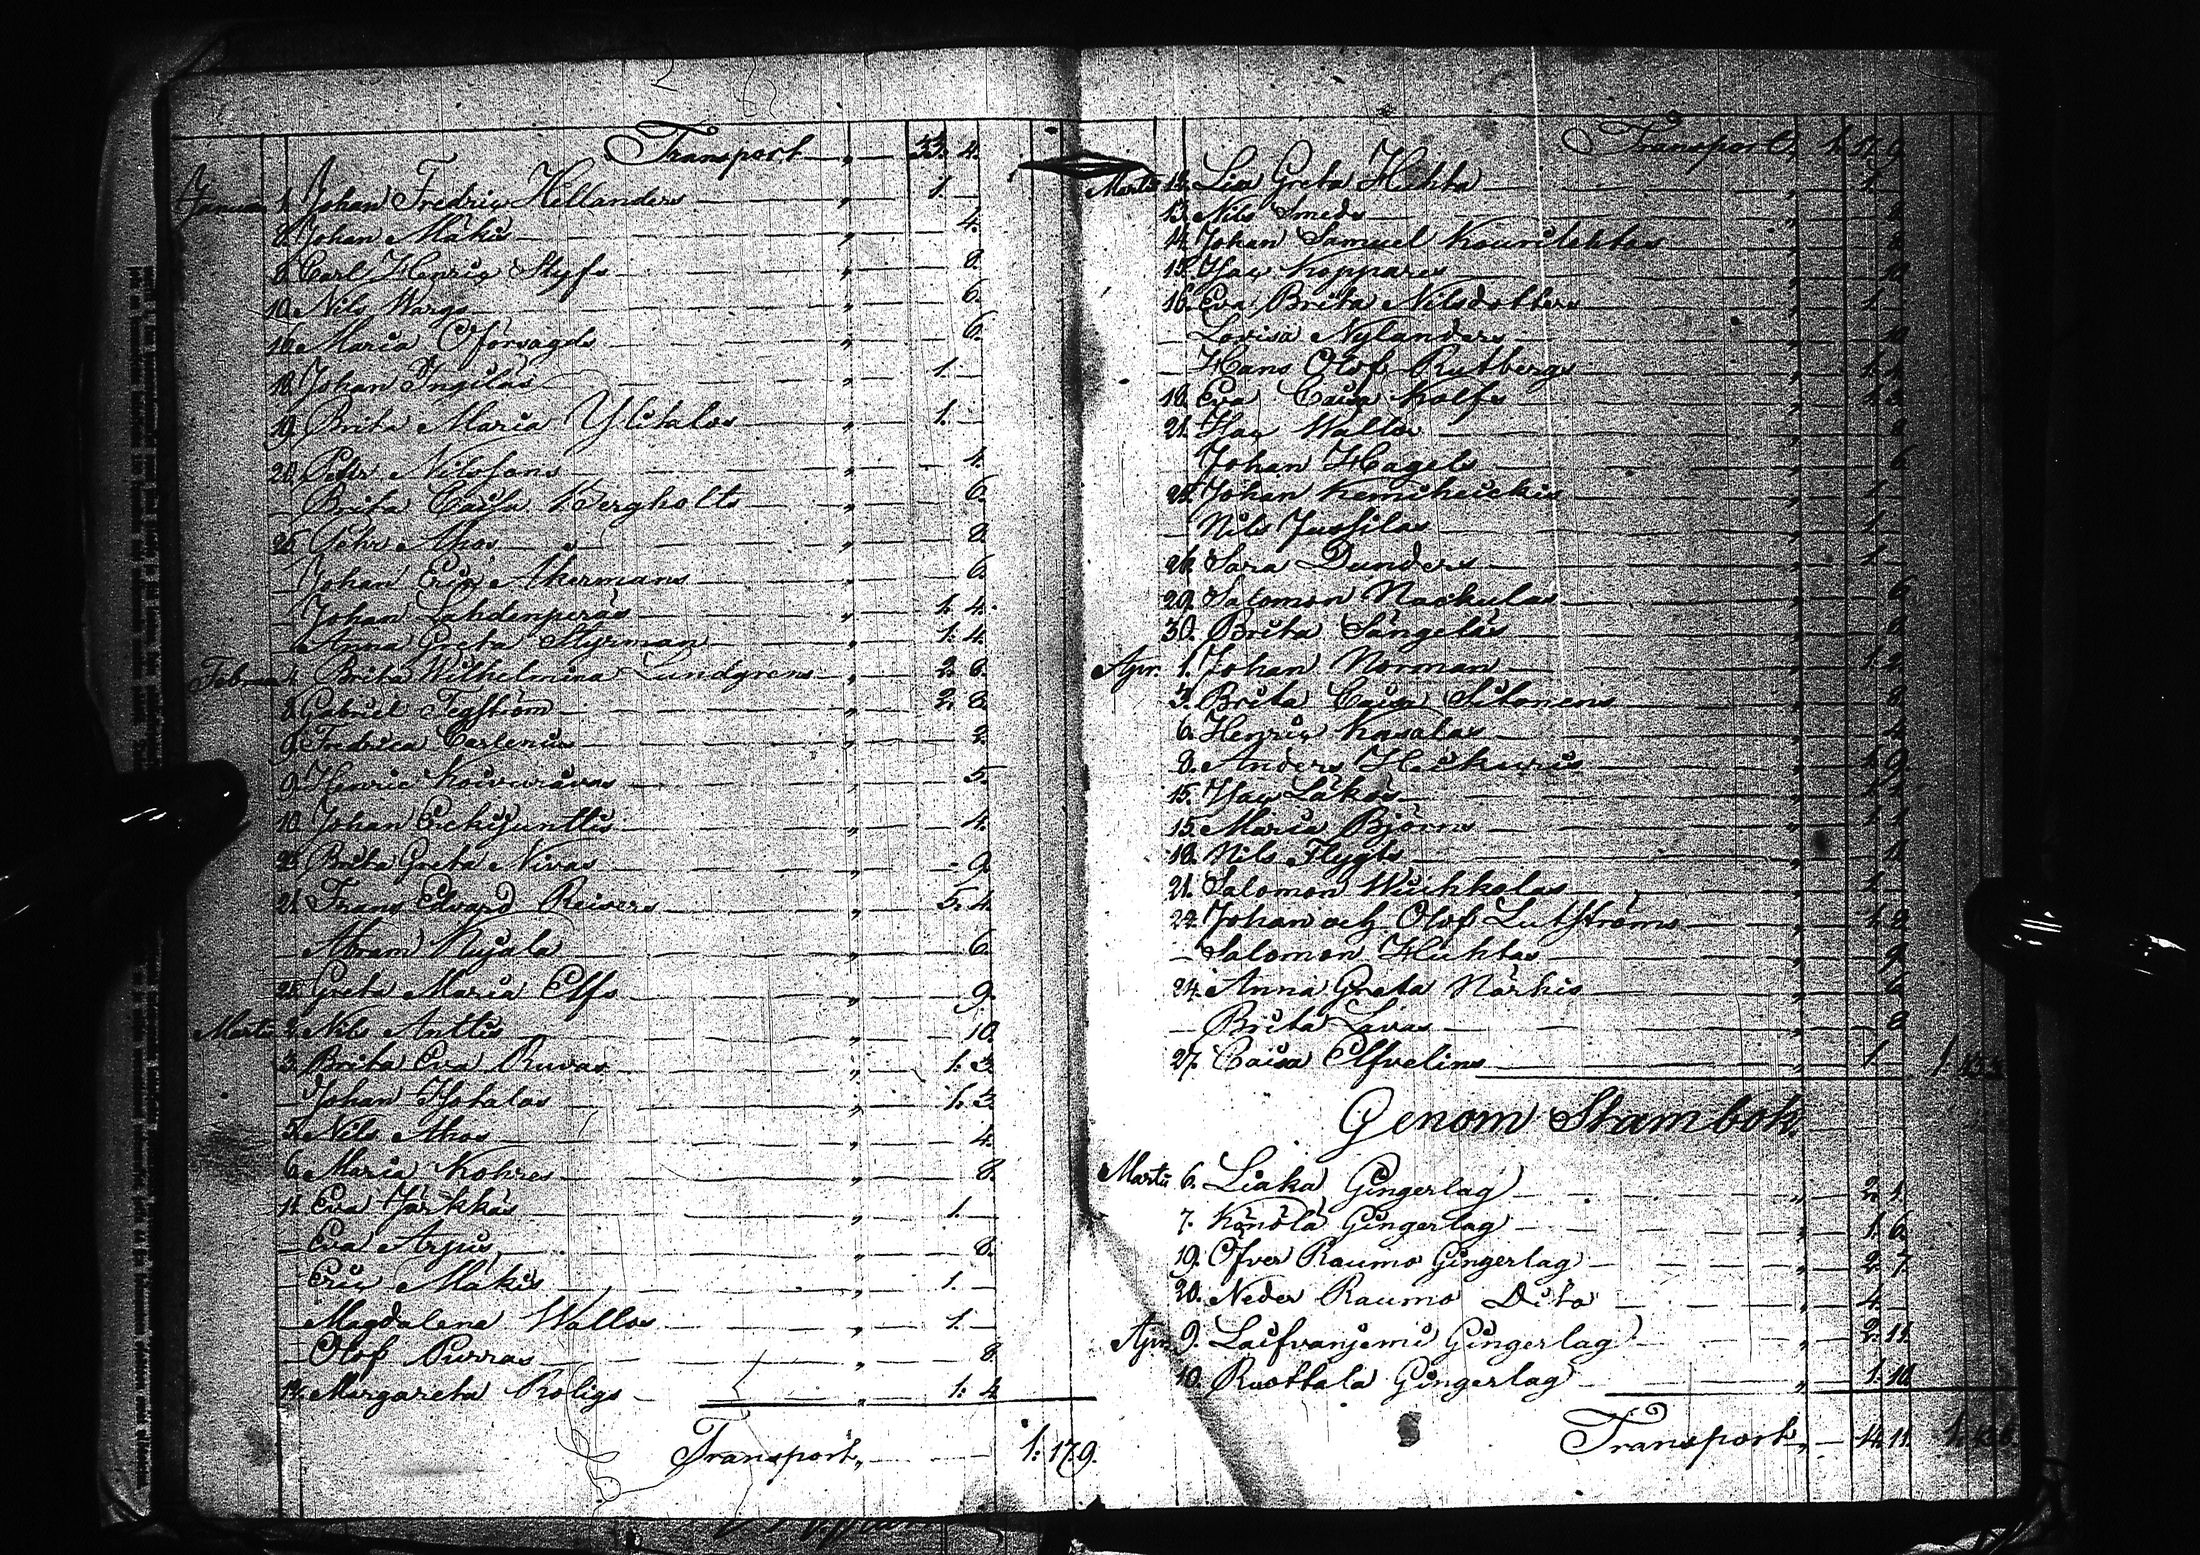 Transport „ — 33. 4.
Januari 1. Johan Fredric Hellanders — „ — 1. —
8. Johan Mäkis — „ — 4.
8. Carl Henric Styfs — „ — 8.
10. Nils Wargs — „ — 6.
16. Maria Oförsagds — „ — 6.
18. Johan Ingilas — „ — 1. —
19. Brita Maria Ylitalos — „ — 1. —
20. Petter Nilssons — „ — 4.
— Brita Caisa Bergholts — „ — 6.
25. Göhr Ahos — „ — 8.
— Johan Eric Akermans — „ — 6.
— Johan Lahdenperäs — „ — 1. 4.
— Anna Greta Styrman — „ — 1. 4.
Febr. 1. Brita Wilhelmina Lundgrens — „ — 2. 8.
8. Gabriel Tegström — „ — 2. 8.
9. Fredrica Carlenius — „ — 2.
9. Henric Koivuravas — „ — 5.
10. Johan Eckijunttis — „ — 4.
20. Brita Greta Nivas — „ — 9.
21. Frans Edvard Reivers — „ — 5. 4.
— Abram Nujala — „ — 6.
25. Greta Maria Elfs — „ — 9.
Martii 2. Nils Anttis — „ — 10.
3. Brita Eva Ruvas — „ — 1. 3.
— Johan Isotalos — „ — 1. 3.
5. Nils Ahos — „ — 4.
6. Maria Kohres — „ — 8.
11. Eva Järkkäs — „ — 1. —
— Eva Arpus — „ — 8.
— Eric Mäkis — „ — 1. —
— Magdalena Wallos — „ — 1. —
— Olof Purras — „ — 8.
12. Margareta Roligs — „ — 1. 4.
Transport „ — 1. 17. 9.
Transport „ 1. 17. 9.
Martii 12. Lisa Greta Hehta — „ — 1. —
13. Nils Smeds — „ — 8.
14. Johan Samuel Kourilehtos — „ — 8.
15. Isac Koppares — „ — 8.
16. Eva Brita Nilsdotters — „ — 1. —
— Lovisa Nylanders — „
— Hans Olof Rutbergs — „ — 1. 4.
18. Eva Caisa Kolfs — „ — 1. 3.
21. Isac Wallos — „ — 8.
Johan Hagels — „ — 6.
22. Johan Kemiheickis — „ — 1. —
— Nils Jussilas — „ — 1. —
26. Sara Dunders — „ — 1. —
29. Salomon Nackulas — „ — 6.
30. Brita Sängeläs — „ — 8.
Apr. 1. Johan Norman — „ — 1. 2.
3. Brita Caisa Sitonens — „ — 8.
6. Henric Kasalas — „ — 4.
8. Anders Heikuris — „ — 1. 9.
15. Isac Läkös — „
15. Maria Björns — „
18. Nils Flygts — „
21. Salomon Wuihkolas — „ — 1. —
22. Johan och Olof Lutströms — „ — 1. 2.
— Salomon Huhtas — „ — 9.
24. Anna Greta Närhis — „ — 6.
— Brita Lavas — „ — 8
27. Caisa Elfvelins — „ — 1. —
Genom Stambok.
Martii 6. Liaka Gingerlag — „ — 2. 1.
7. Könölä Gingerlag — „ — 1. 6.
19. Öfver Raumo Gingerlag — „ — 2. 7.
20. Neder Raumo Dito — „ — 4. —
Apr. 9. Laifvanjemi Gingerlag — „ — 2. 11.
10. Ruottala Gingerlag — „ — 1. 10.
Transport „ — 14. 11.